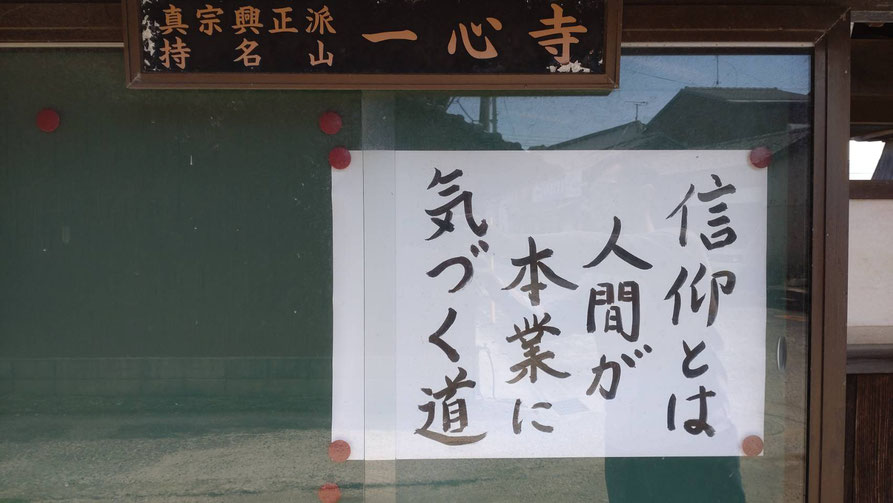 真宗興正派
持名山
一心寺
信仰とは
人間が
本業に
気づく道